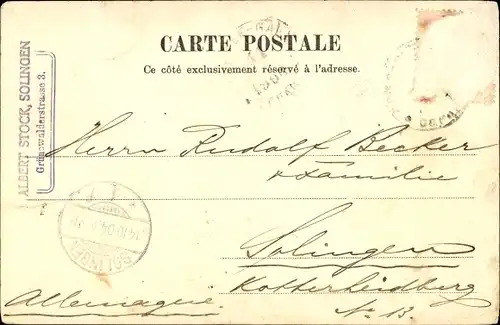 CARTE POSTALE
Ce côté exclusivement réservé à l'adresse.
ALBERT STOCK, SOLINGEN
Grünewalderstrasse 3.
Herrn Rudolf Becker
+ Familie
Solingen
Kotterheidberg
No 13.
Allemagne
SOLINGEN
14.10.04